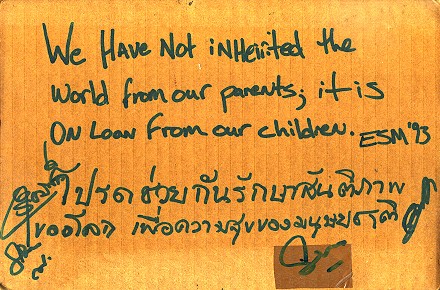 We Have Not inHerited the
World from our parents; it is
ON Loan From our children. ESM '93
โปรดช่วยกันรักษาสันติภาพ
ของโลก เพื่อความสุขของมนุษยชาติ